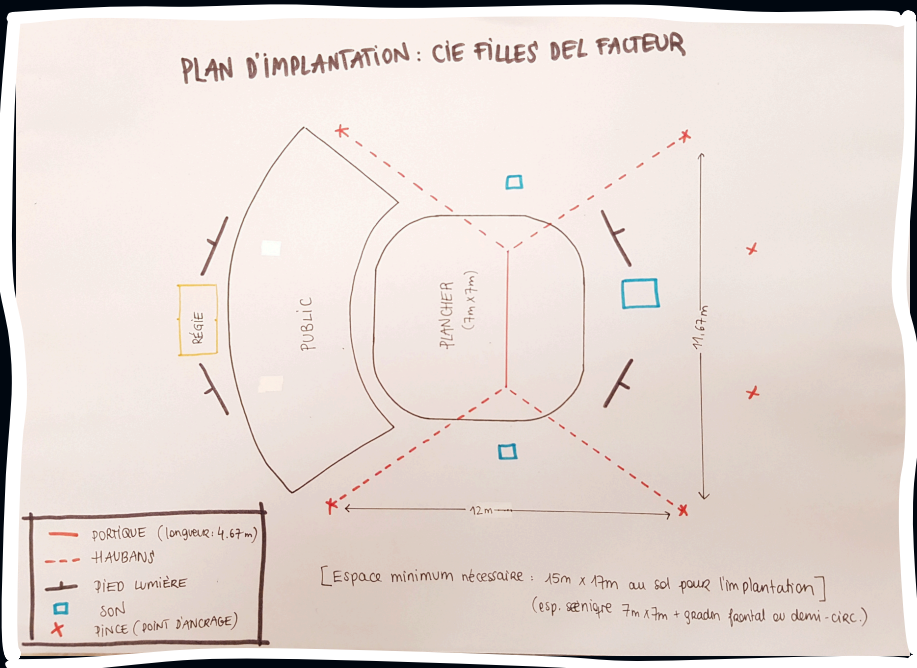 PLAN D'IMPLANTATION: CIE FILLES DEL FACTEUR
RÉGIE
PUBLIC
PLANCHER
(7m x 7m)
11,67m
12m
PORTIQUE (longueur: 4.67m)
HAUBANS
PIED LUMIÈRE
SON
PINCE (POINT D'ANCRAGE)
[Espace minimum nécessaire : 15m x 17m au sol pour l'implantation]
(esp. scéniqre 7m x 7m + gradin frontal ou demi-circ.)